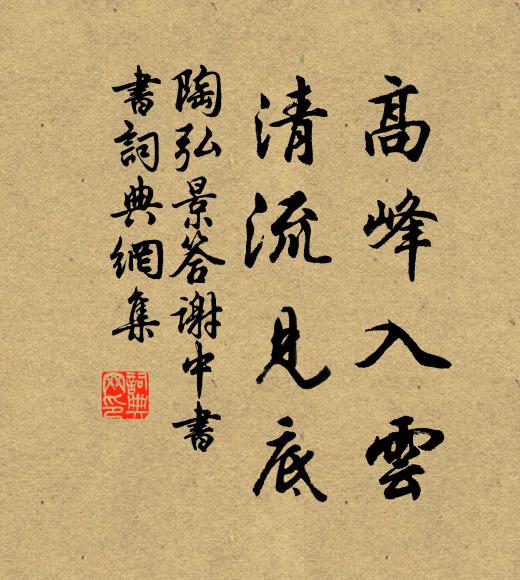 高峰入雲
清流見底
陶弘景答謝中書
書詞典網集
詞典
网印